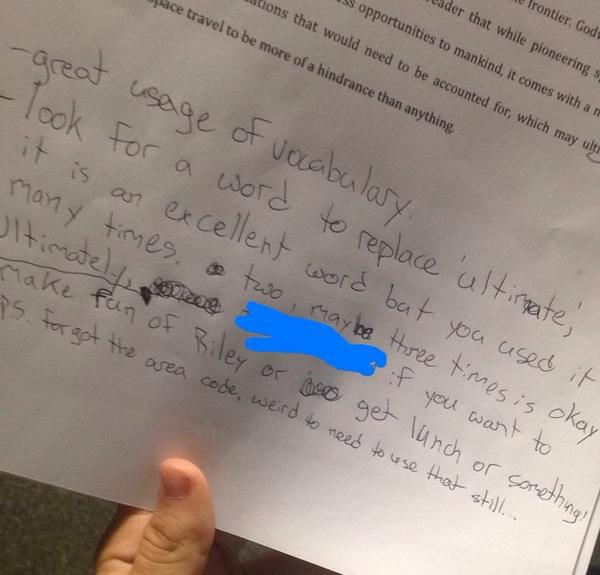 e frontier. Godw
eader that while pioneering s
ss opportunities to mankind, it comes with a n
ations that would need to be accounted for, which may ulti
pace travel to be more of a hindrance than anything.
-great usage of vocabulary.
- look for a word to replace 'ultimate',
it is an excellent word but you used it
many times. two, maybe three times is okay
Ultimately, if you want to
make fun of Riley or get lunch or something!
PS. forgot the area code, weird to need to use that still...